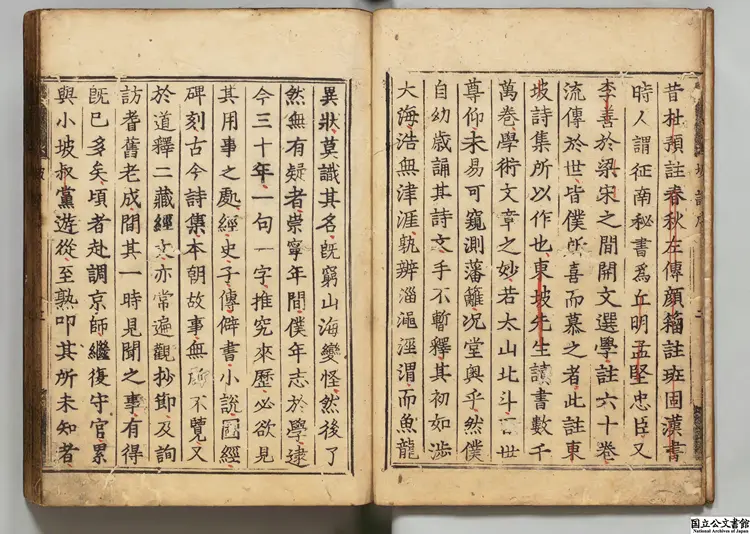 昔杜預註春秋左傳顔籀註班固漢書
時人謂征南秘書爲丘明孟堅忠臣又
李善於梁宋之間開文選學註六十卷
流傳於世皆僕所喜而慕之者此註東
坡詩集所以作也東坡先生讀書數千
萬卷學術文章之妙若太山北斗百世
尊仰未易可窺測藩籬况堂奧乎然僕
自幼歳誦其詩文手不暫釋其初如渉
大海浩無津涯孰辨淄澠涇渭而魚龍
異狀莫識其名旣窮山海變怪然後了
然無有疑者崇寧年間僕年志於學逮
今三十年一句一字推究來歷必欲見
其用事之處經史子傳僻書小說圖經
碑刻古今詩集本朝故事無所不覽又
於道釋二藏經文亦常遍觀抄節及詢
訪耆舊老成間其一時見聞之事有得
旣已多矣頃者赴調京師繼復守官累
與小坡叔黨遊從至熟叩其所未知者
国立公文書館
National Archives of Japan